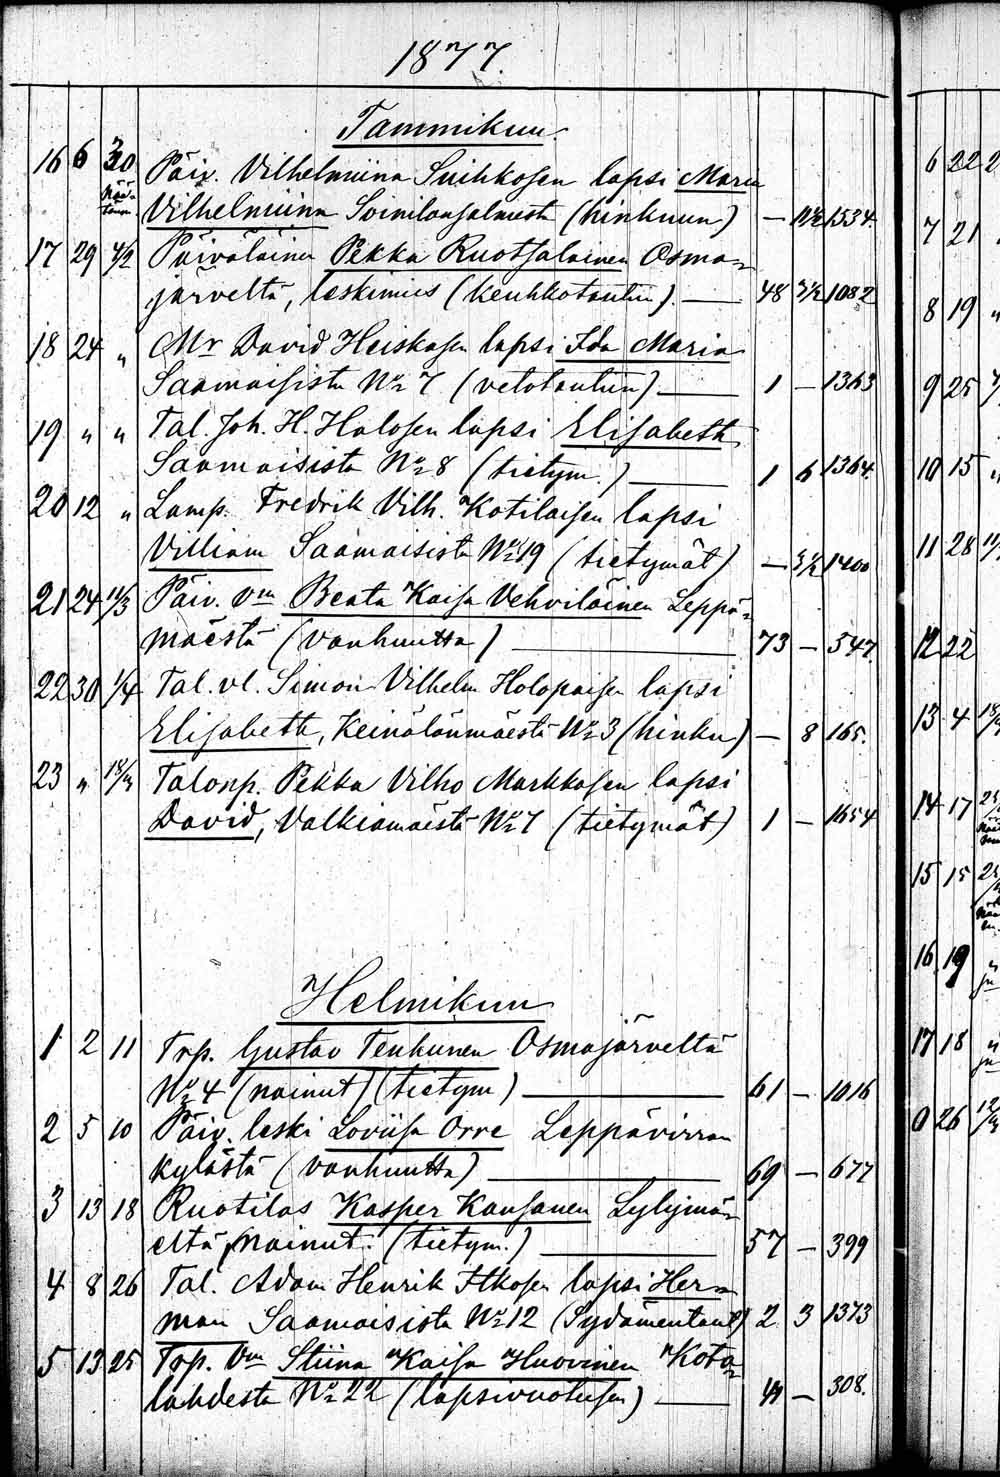 1877.
Tammikuu.
16 6 30 Päiv. Vilhelmiina Suihkosen lapsi Maria
Vilhelmiina Soinilansalmesta (hinkuun) — 1534.
17 29 4/2 Päiväläinen Pekka Ruotsalainen Osma=
järveltä, leskimies (keuhkotautiin). — 48 1082
18 24 " Mr David Heiskasen lapsi Ida Maria
Saamaisista No 7 (vetotautiin) — 1 — 1363
19 " " Tal. Joh. H. Halosen lapsi Elisabeth
Saamaisista No 8 (tietym.) — 1 6 1364.
20 12 " Lamp. Fredrik Vilh. Kotilaisen lapsi
Villiam Saamaisista No 19 (tietymät) — 1400
21 24 11/3 Päiv. Vm Beata Kaisa Vehviläinen Leppä=
mäestä (vanhuutta) — 73 — 547.
22 30 1/4 Tal. vl. Simon Vilhelm Holopaisen lapsi
Elisabeth, Keinälänmäestä No 3 (hinku) — 8 165.
23 " Talonp. Pekka Vilho Markkasen lapsi
David, Valkiamäestä No 7 (tietymät) 1 — 1654
Helmikuu
1 2 11 Trp. Gustav Tenhunen Osmajärveltä
No 4 (nainut) (tietym) — 61 — 1016
2 5 10 Päiv. leski Loviisa Orre Leppävirran
kylästä (vanhuutta) — 69 — 677
3 13 18 Ruotilas Kasper Kansanen Sylymä=
eltä, nainut. (tietym.) — 57 — 399
4 8 26 Tal. Adam Henrik Itkosen lapsi Her=
man Saamaisista No 12 (Sydämentaut) 2 3 1373
5 13 25 Trp. Vm Stiina Kaisa Huovinen Kota=
lahdesta No 22 (lapsivuoteesen) — 308.
6 22
7 21
8 19 "
9 25
10 15 "
11 28
12 22
13 4
14 17
15 15
16 19
17 18
26